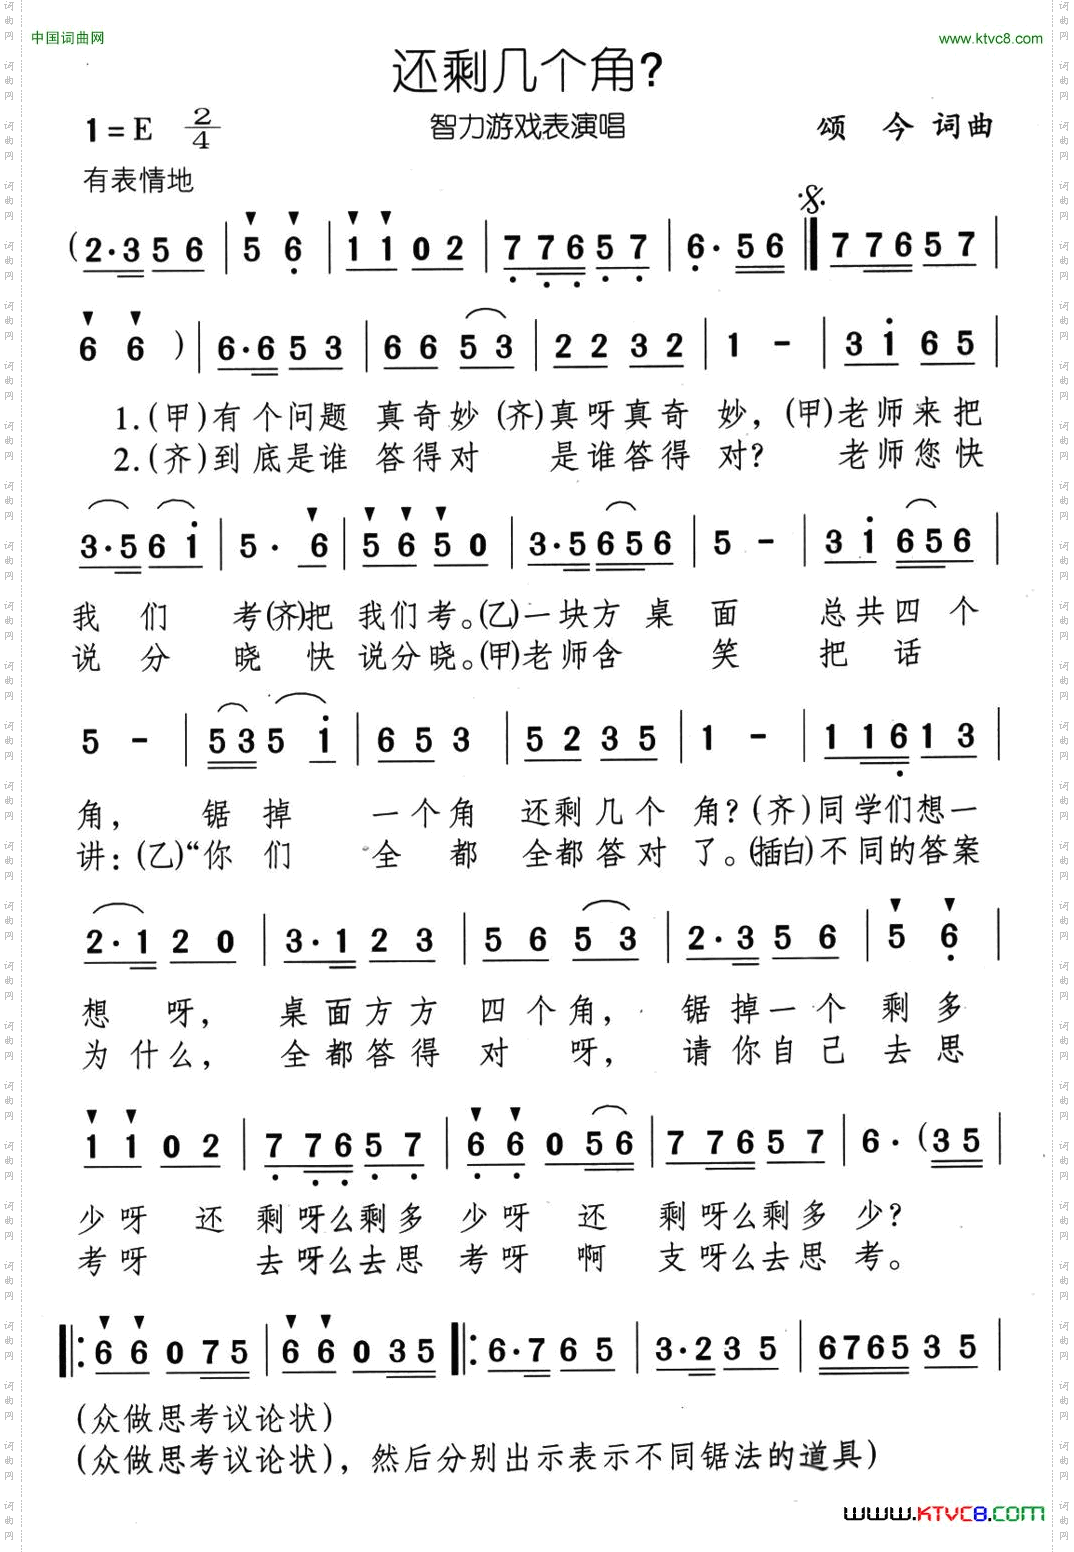 中国词曲网 www.ktvc8.com
还剩几个角?
1=E 2/4 智力游戏表演唱 颂今词曲
有表情地
(2·356 | 5 6 | 1102 | 77657 | 6·56 | 77657 |
6 6 ) | 6·653 | 6653 | 2232 | 1 - | 3165 |
1.(甲)有个问题 真奇妙 (齐)真呀真奇 妙，(甲)老师来把
2.(齐)到底是谁 答得对 是谁答得 对? 老师您快
3·561 | 5· 6 | 5650 | 3·5656 | 5 - | 31656 |
我们 考(齐)把 我们考。(乙)一块方桌 面 总共四个
说分 晓快 说分晓。(甲)老师含 笑 把话
5 - | 535 1 | 6 5 3 | 5235 | 1 - | 11613 |
角， 锯掉 一个角 还剩几个 角?(齐)同学们想一
讲：(乙)“你们 全都 全都答对 了。(插白)不同的答案
2·120 | 3·123 | 5653 | 2·356 | 5 6 |
想呀， 桌面方方 四个角， 锯掉一个 剩多
为什么， 全都答得 对呀， 请你自己 去思
1102 | 77657 | 66056 | 77657 | 6·(35 |
少呀还 剩呀么剩多 少呀还 剩呀么剩多 少?
考呀 去呀么去思 考呀啊 支呀么去思 考。
66075 | 66035 | 6·765 | 3·235 | 676535 |
(众做思考议论状)
(众做思考议论状)，然后分别出示表示不同锯法的道具)
www.KTVC8.com